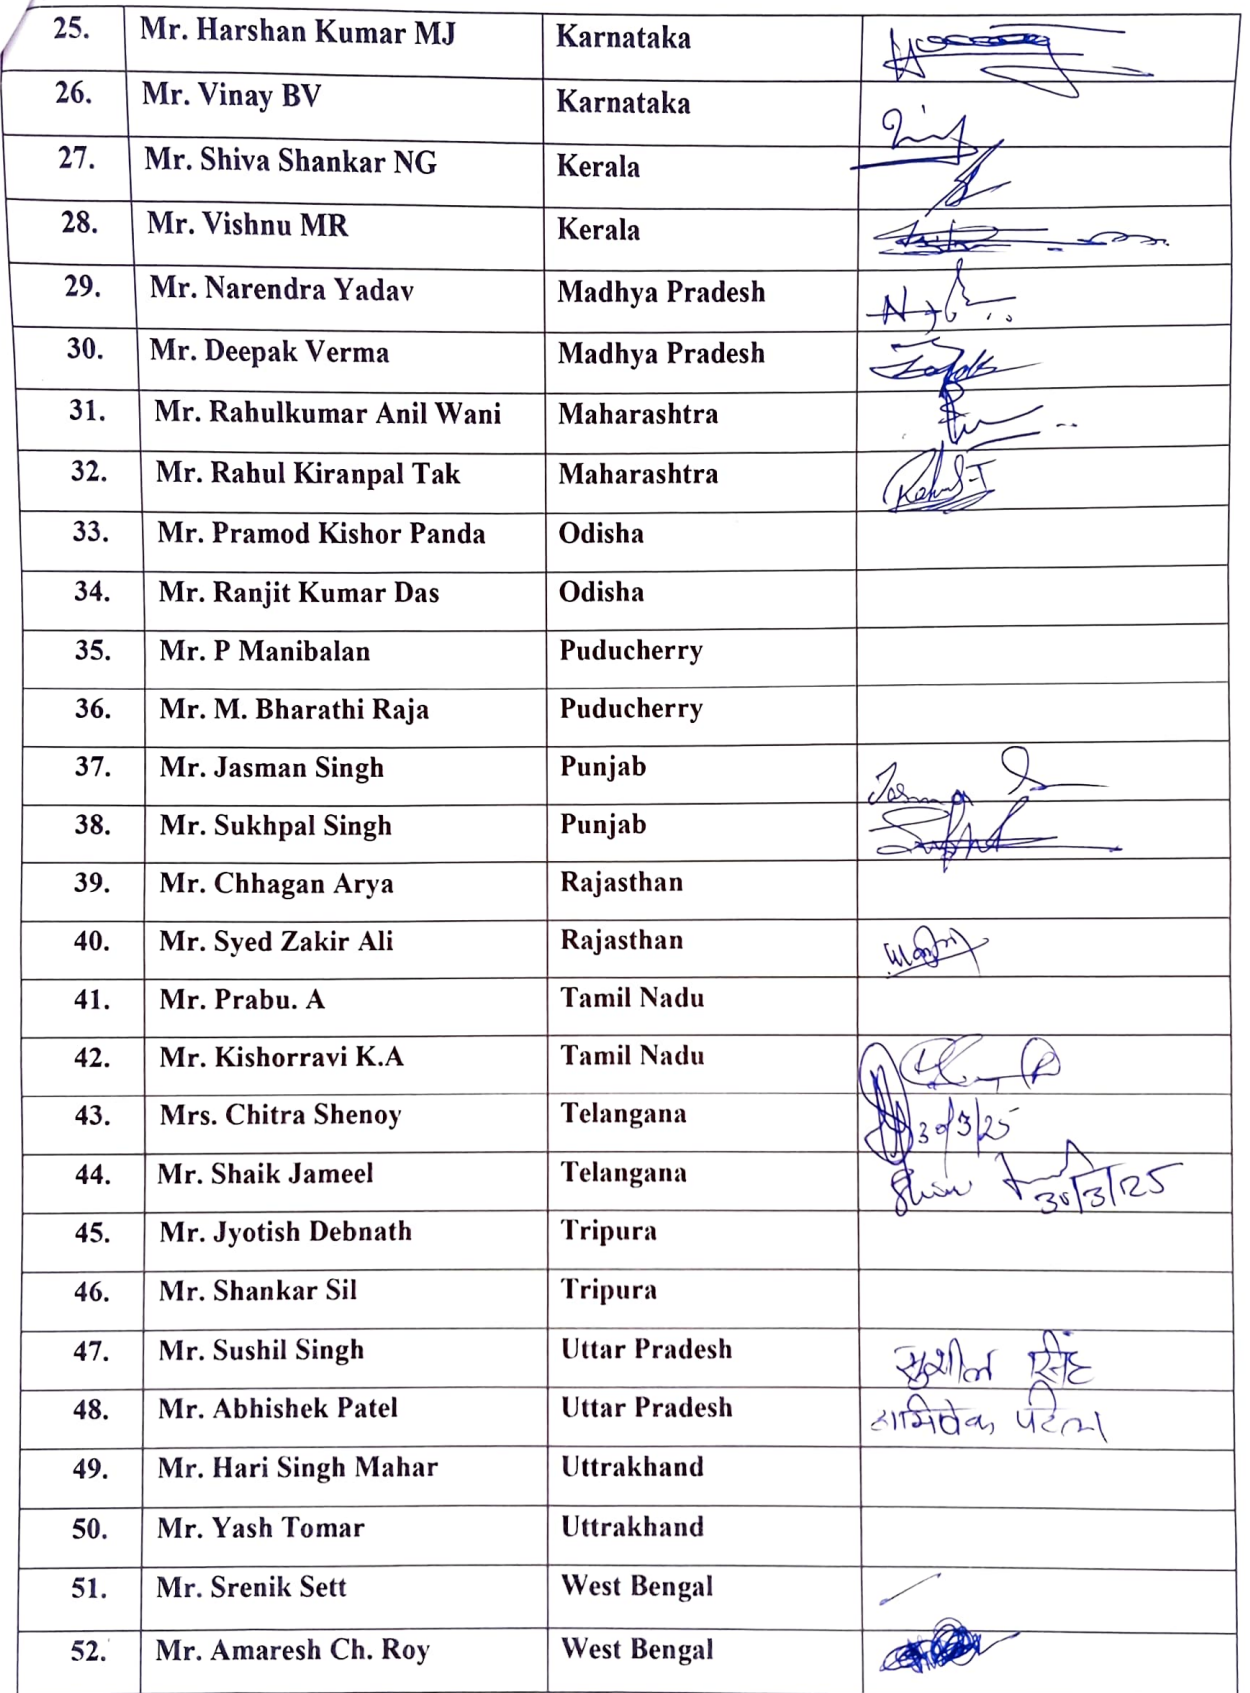 25. Mr. Harshan Kumar MJ Karnataka
26. Mr. Vinay BV Karnataka
27. Mr. Shiva Shankar NG Kerala
28. Mr. Vishnu MR Kerala
29. Mr. Narendra Yadav Madhya Pradesh
30. Mr. Deepak Verma Madhya Pradesh
31. Mr. Rahulkumar Anil Wani Maharashtra
32. Mr. Rahul Kiranpal Tak Maharashtra Rahul-T
33. Mr. Pramod Kishor Panda Odisha
34. Mr. Ranjit Kumar Das Odisha
35. Mr. P Manibalan Puducherry
36. Mr. M. Bharathi Raja Puducherry
37. Mr. Jasman Singh Punjab
38. Mr. Sukhpal Singh Punjab
39. Mr. Chhagan Arya Rajasthan
40. Mr. Syed Zakir Ali Rajasthan
41. Mr. Prabu. A Tamil Nadu
42. Mr. Kishorravi K.A Tamil Nadu
43. Mrs. Chitra Shenoy Telangana 30/3/25
44. Mr. Shaik Jameel Telangana 30/3/25
45. Mr. Jyotish Debnath Tripura
46. Mr. Shankar Sil Tripura
47. Mr. Sushil Singh Uttar Pradesh सुशील सिंह
48. Mr. Abhishek Patel Uttar Pradesh अभिषेक पटेल
49. Mr. Hari Singh Mahar Uttrakhand
50. Mr. Yash Tomar Uttrakhand
51. Mr. Srenik Sett West Bengal
52. Mr. Amaresh Ch. Roy West Bengal